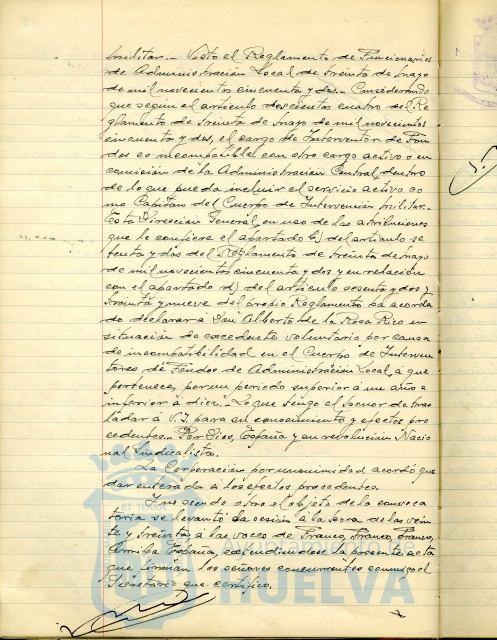 militar.- Visto el Reglamento de Funcionarios
de Administración Local de treinta de mayo
de mil novecientos cincuenta y dos.- Considerando
que según el artículo doscientos cuatro del Re
glamento de treinta de mayo de mil novecientos
cincuenta y dos, el cargo de Interventor de Fon
dos es incompatible con otro cargo activo o en
comisión de la Administración Central, dentro
de lo que pueda incluir el servicio activo co
mo Capitán del Cuerpo de Intervención militar.-
Esta Dirección General, en uso de las atribuciones
que le confiere el apartado b) del artículo se
tenta y dos del Reglamento de treinta de mayo
de mil novecientos cincuenta y dos y en relación
con el apartado d) del artículo sesenta y dos y
treinta y nueve del propio Reglamento ha acorda
do declarar a Don Alberto de la Rosa Rico en
situación de excedente voluntario por causa
de incompatibilidad en el Cuerpo de Interven
tores de Fondos de Administración Local, a que
pertenece, por un periodo superior a un año e
inferior a diez.- Lo que tengo el honor de tras
ladar a V.I. para su conocimiento y efectos pro
cedentes.- Por Dios, España y su revolución Nacio
nal Sindicalista.
La Corporación por unanimidad acordó que
dar enterada a los efectos procedentes.
Y no siendo otro el objeto de la convoca
toria se levantó la sesión a la hora de las vein
te y treinta, a las voces de Franco, Franco, Franco,
Arriba España, extendiéndose la presente acta
que firman los señores concurrentes conmigo el
Secretario que certifico.
AYUNTAMIENTO DE
HUELVA